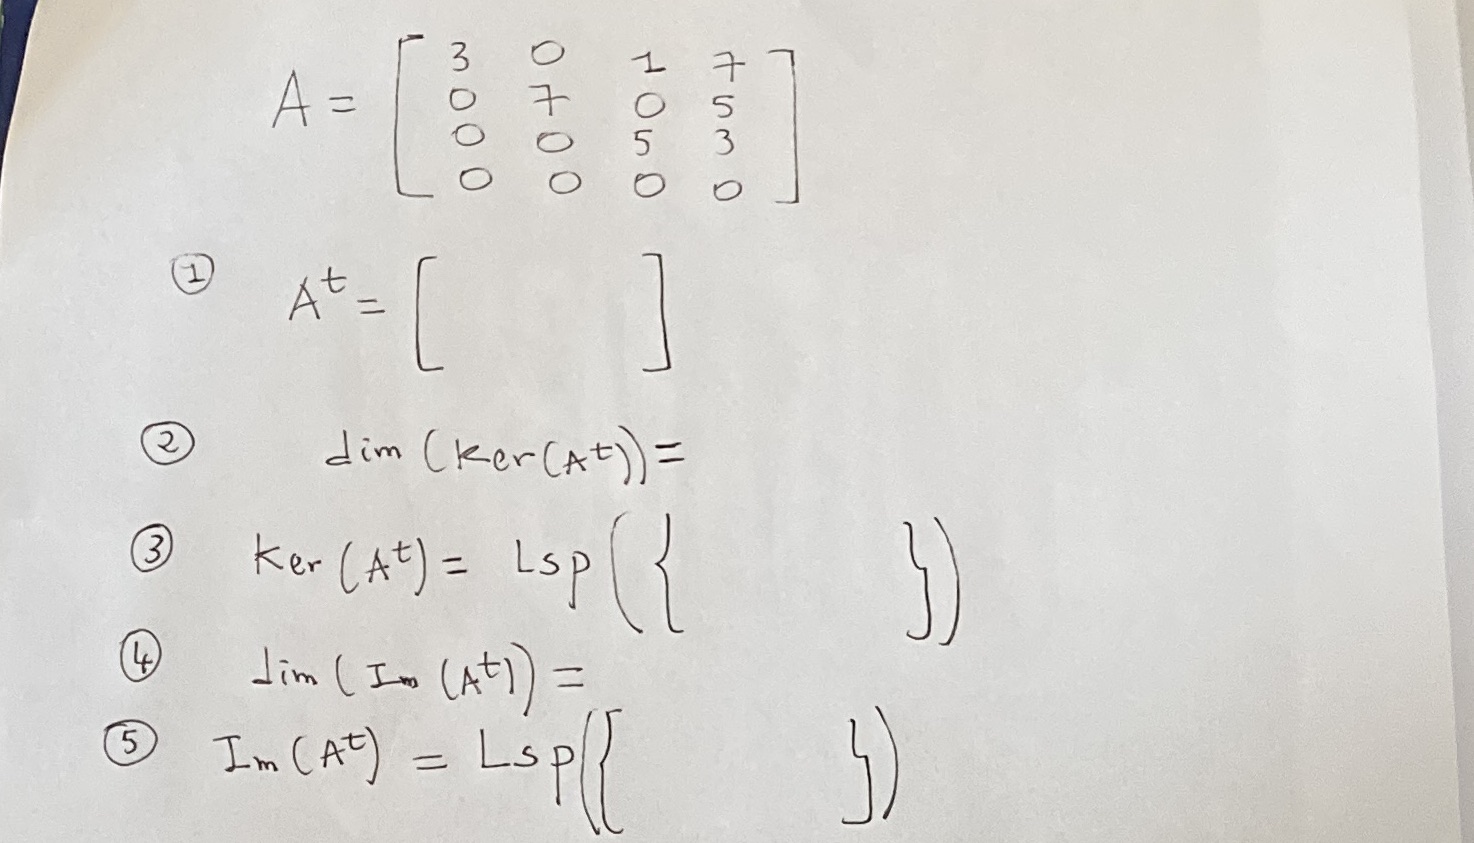 A = [ 3 0 1 7
0 7 0 5
0 0 5 3
0 0 0 0 ]
① Aᵗ = [ ]
② dim (Ker(Aᵗ)) =
③ Ker (Aᵗ) = Lsp ({ })
④ dim ( Im (Aᵗ)) =
⑤ Im (Aᵗ) = Lsp({ })